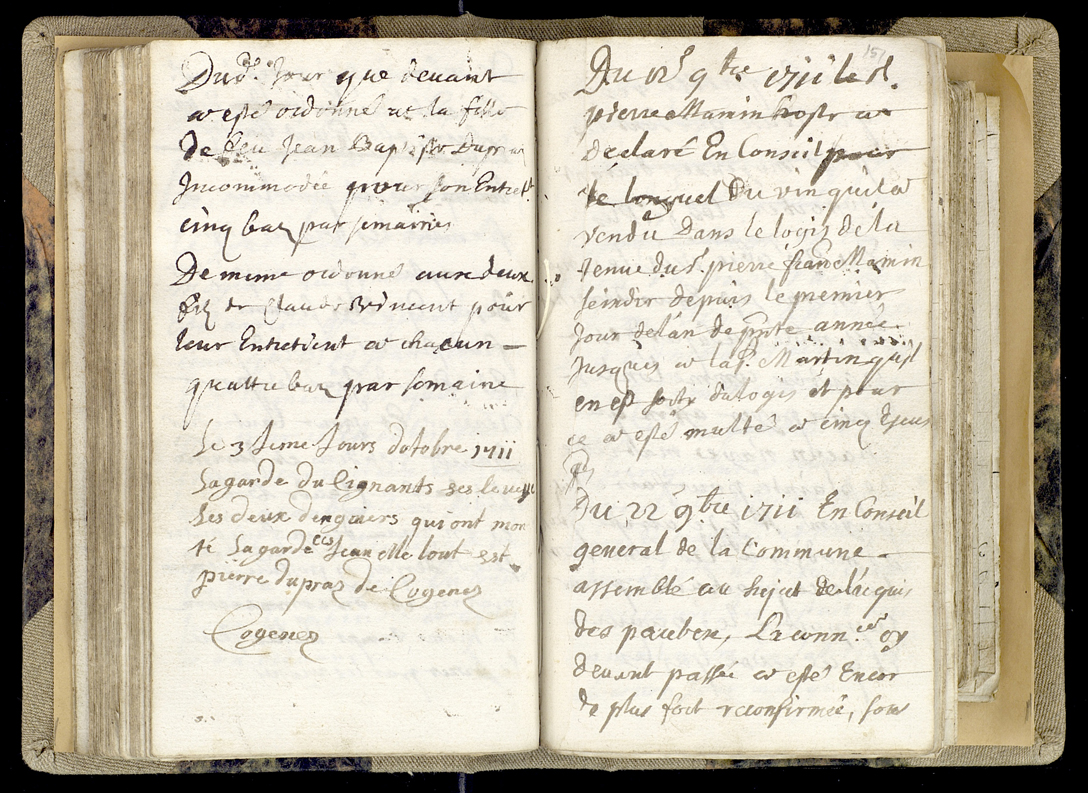 Dud.t Jour que devant
a esté ordonné a la fille
De feu Jean Baptiste Dupraz
Jncommodée pour son Entret.t
cinq baz par semaines
De meme ordonné aux deux
filz de Claude pour
leur Entretient a chacun —
quattre baz par Semaine
Le 3 Jours dotobre 1711
Lagarde du
Les deux qui ont mon
té Lagarde Jean elle tout est
pierre dupraz de Cogenez
Cogenez
151
Du 12.e 9bre 1711 le S.r
pierre Mamin hoste a
declaré En Conseil pour
le longuel Du vin quil a
vendu Dans le logis de la
tenue du S.r pierre franc Mamin
depuis le premier
Jour de lan de pnte année
Jusques a la S.t Martin quil
en est sorty du logis et pour
ce a esté multé a cinq Escus
Du 22 9bre 1711 En Conseil
general de la Commune —
assemblé au Sujet de lacquis
des pauberx, La conn.ce cy
devant passée a esté Encor
de plus fort reconfirmée, sous